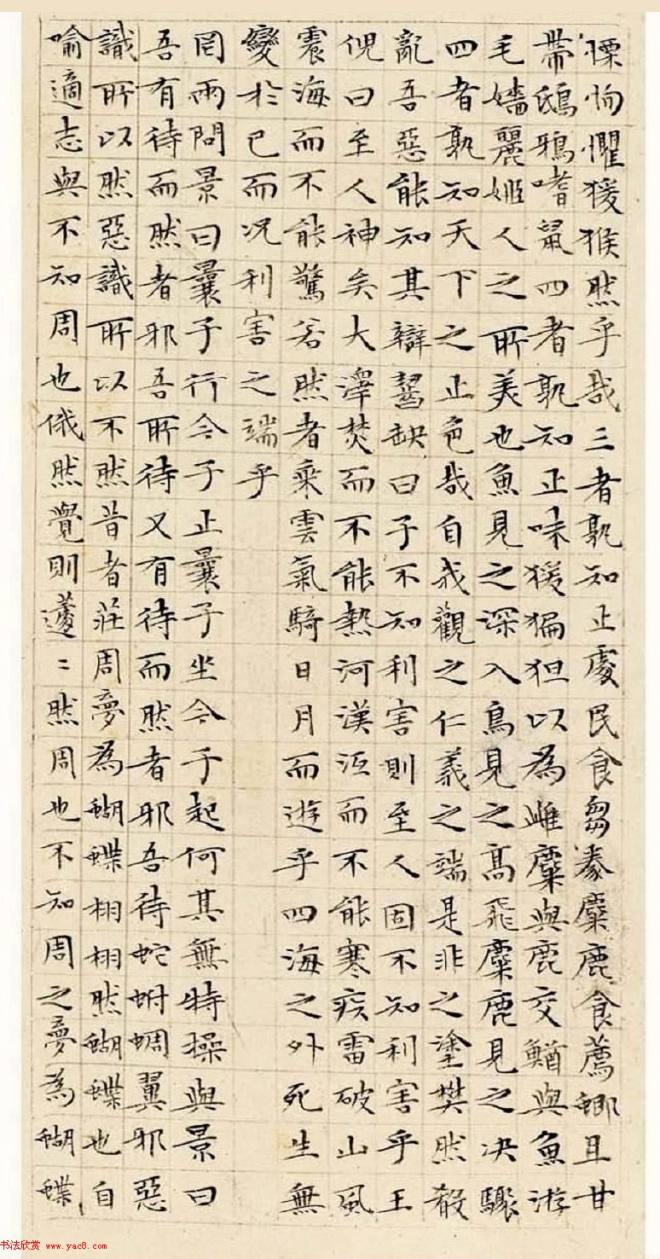 慄恂懼猨猴然乎哉三者孰知正處民食芻豢麋鹿食薦蝍且甘
帶鴟鴉嗜鼠四者孰知正味猨猵狙以為雌麋與鹿交鰌與魚游
毛嬙麗姬人之所美也魚見之深入鳥見之高飛麋鹿見之决驟
四者孰知天下之正色哉自我觀之仁義之端是非之塗樊然殽
亂吾惡能知其辯齧缺曰子不知利害則至人固不知利害乎王
倪曰至人神矣大澤焚而不能熱河漢沍而不能寒疾雷破山風
震海而不能驚若然者乘雲氣騎日月而遊乎四海之外死生無
變於己而況利害之端乎
罔兩問景曰曩子行今子止曩子坐今子起何其無特操與景曰
吾有待而然者邪吾所待又有待而然者邪吾待蛇蚹蜩翼邪惡
識所以然惡識所以不然昔者莊周夢為蝴蝶栩栩然蝴蝶也自
喻適志與不知周也俄然覺則蘧〻然周也不知周之夢為蝴蝶
书法欣赏 www.yac8.com